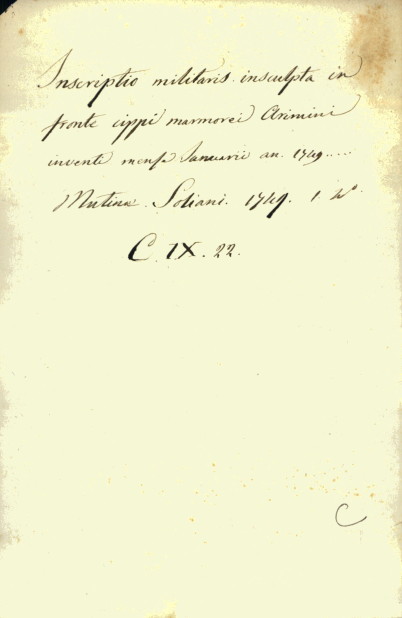 Inscriptio militaris insculpta in
fronte cippi marmorei Arimini
inventi mense Januarii an. 1749....
Mutinae. Soliani. 1749. 1. 4°.
C. IX. 22.
C